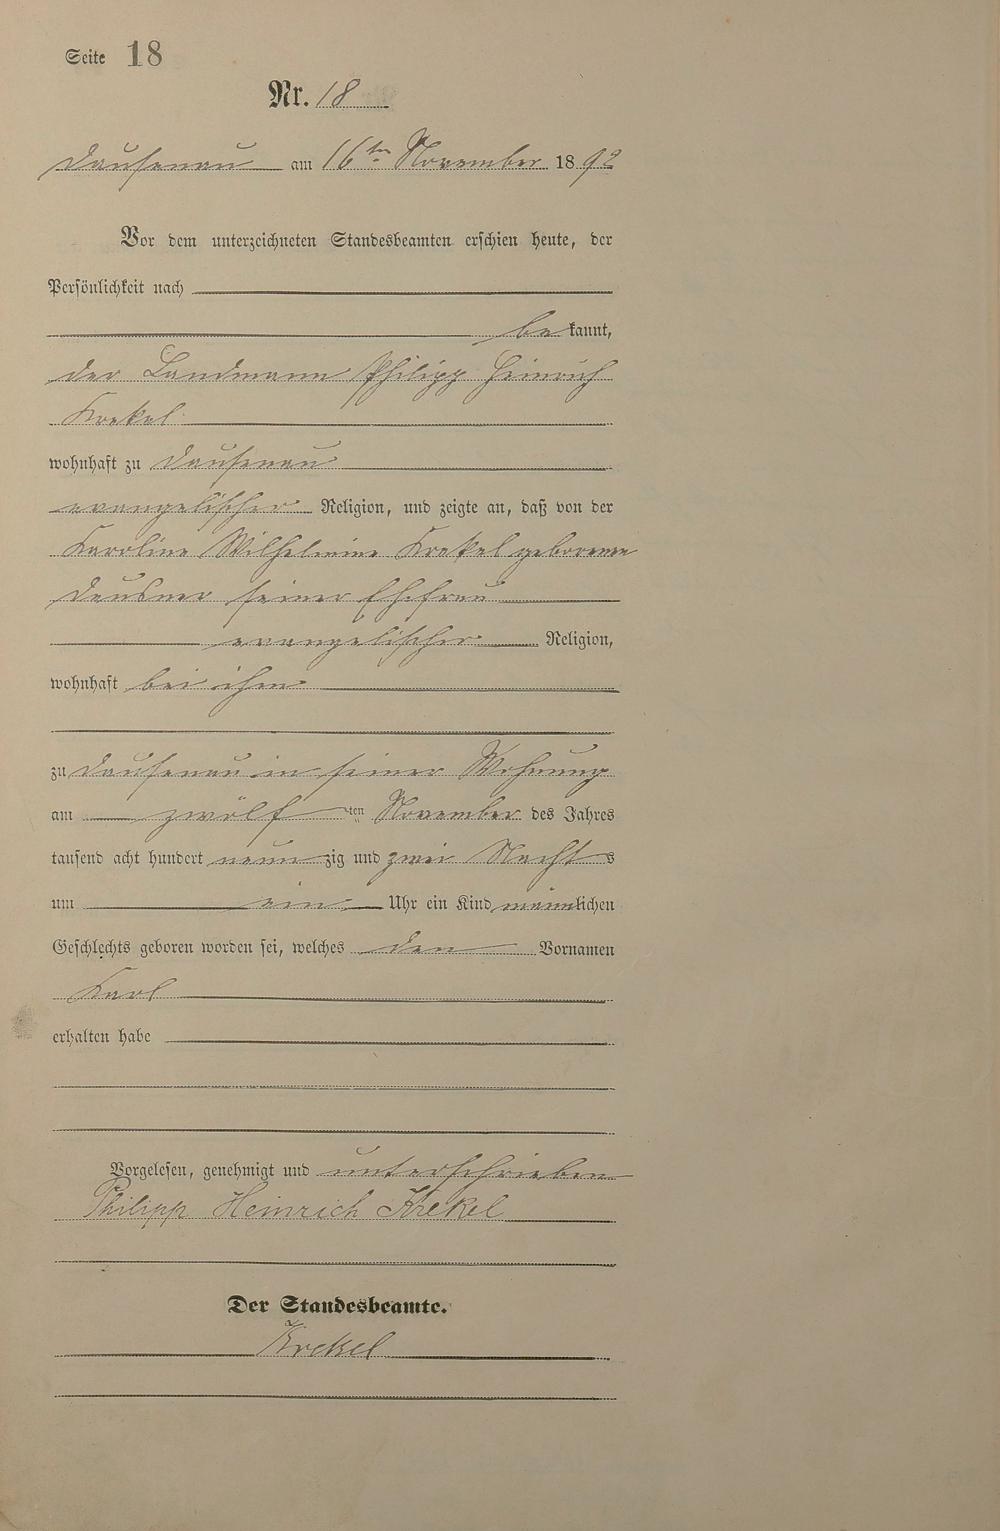 Seite 18
Nr. 18
Dausenau am 16ten November 1892
Vor dem unterzeichneten Standesbeamten erschien heute, der
Persönlichkeit nach
bekannt,
der Landmann Philipp Heinrich
Krekel
wohnhaft zu Dausenau
evangelischer Religion, und zeigte an, daß von der
Karoline Wilhelmine Krekel geborenen
Deusner seiner Ehefrau
evangelischer Religion,
wohnhaft bei ihm
zu Dausenau in seiner Wohnung
am zwölf ten November des Jahres
tausend acht hundert neunzig und zwei Nachts
um ein Uhr ein Kind männlichen
Geschlechts geboren worden sei, welches den Vornamen
Karl
erhalten habe
Vorgelesen, genehmigt und unterschrieben
Philipp Heinrich Krekel
Der Standesbeamte.
Krekel